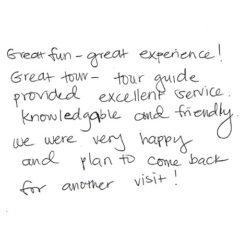 Great fun - great experience!
Great tour - tour guide
provided excellent service.
knowledgable and friendly.
we were very happy
and plan to come back
for another visit!